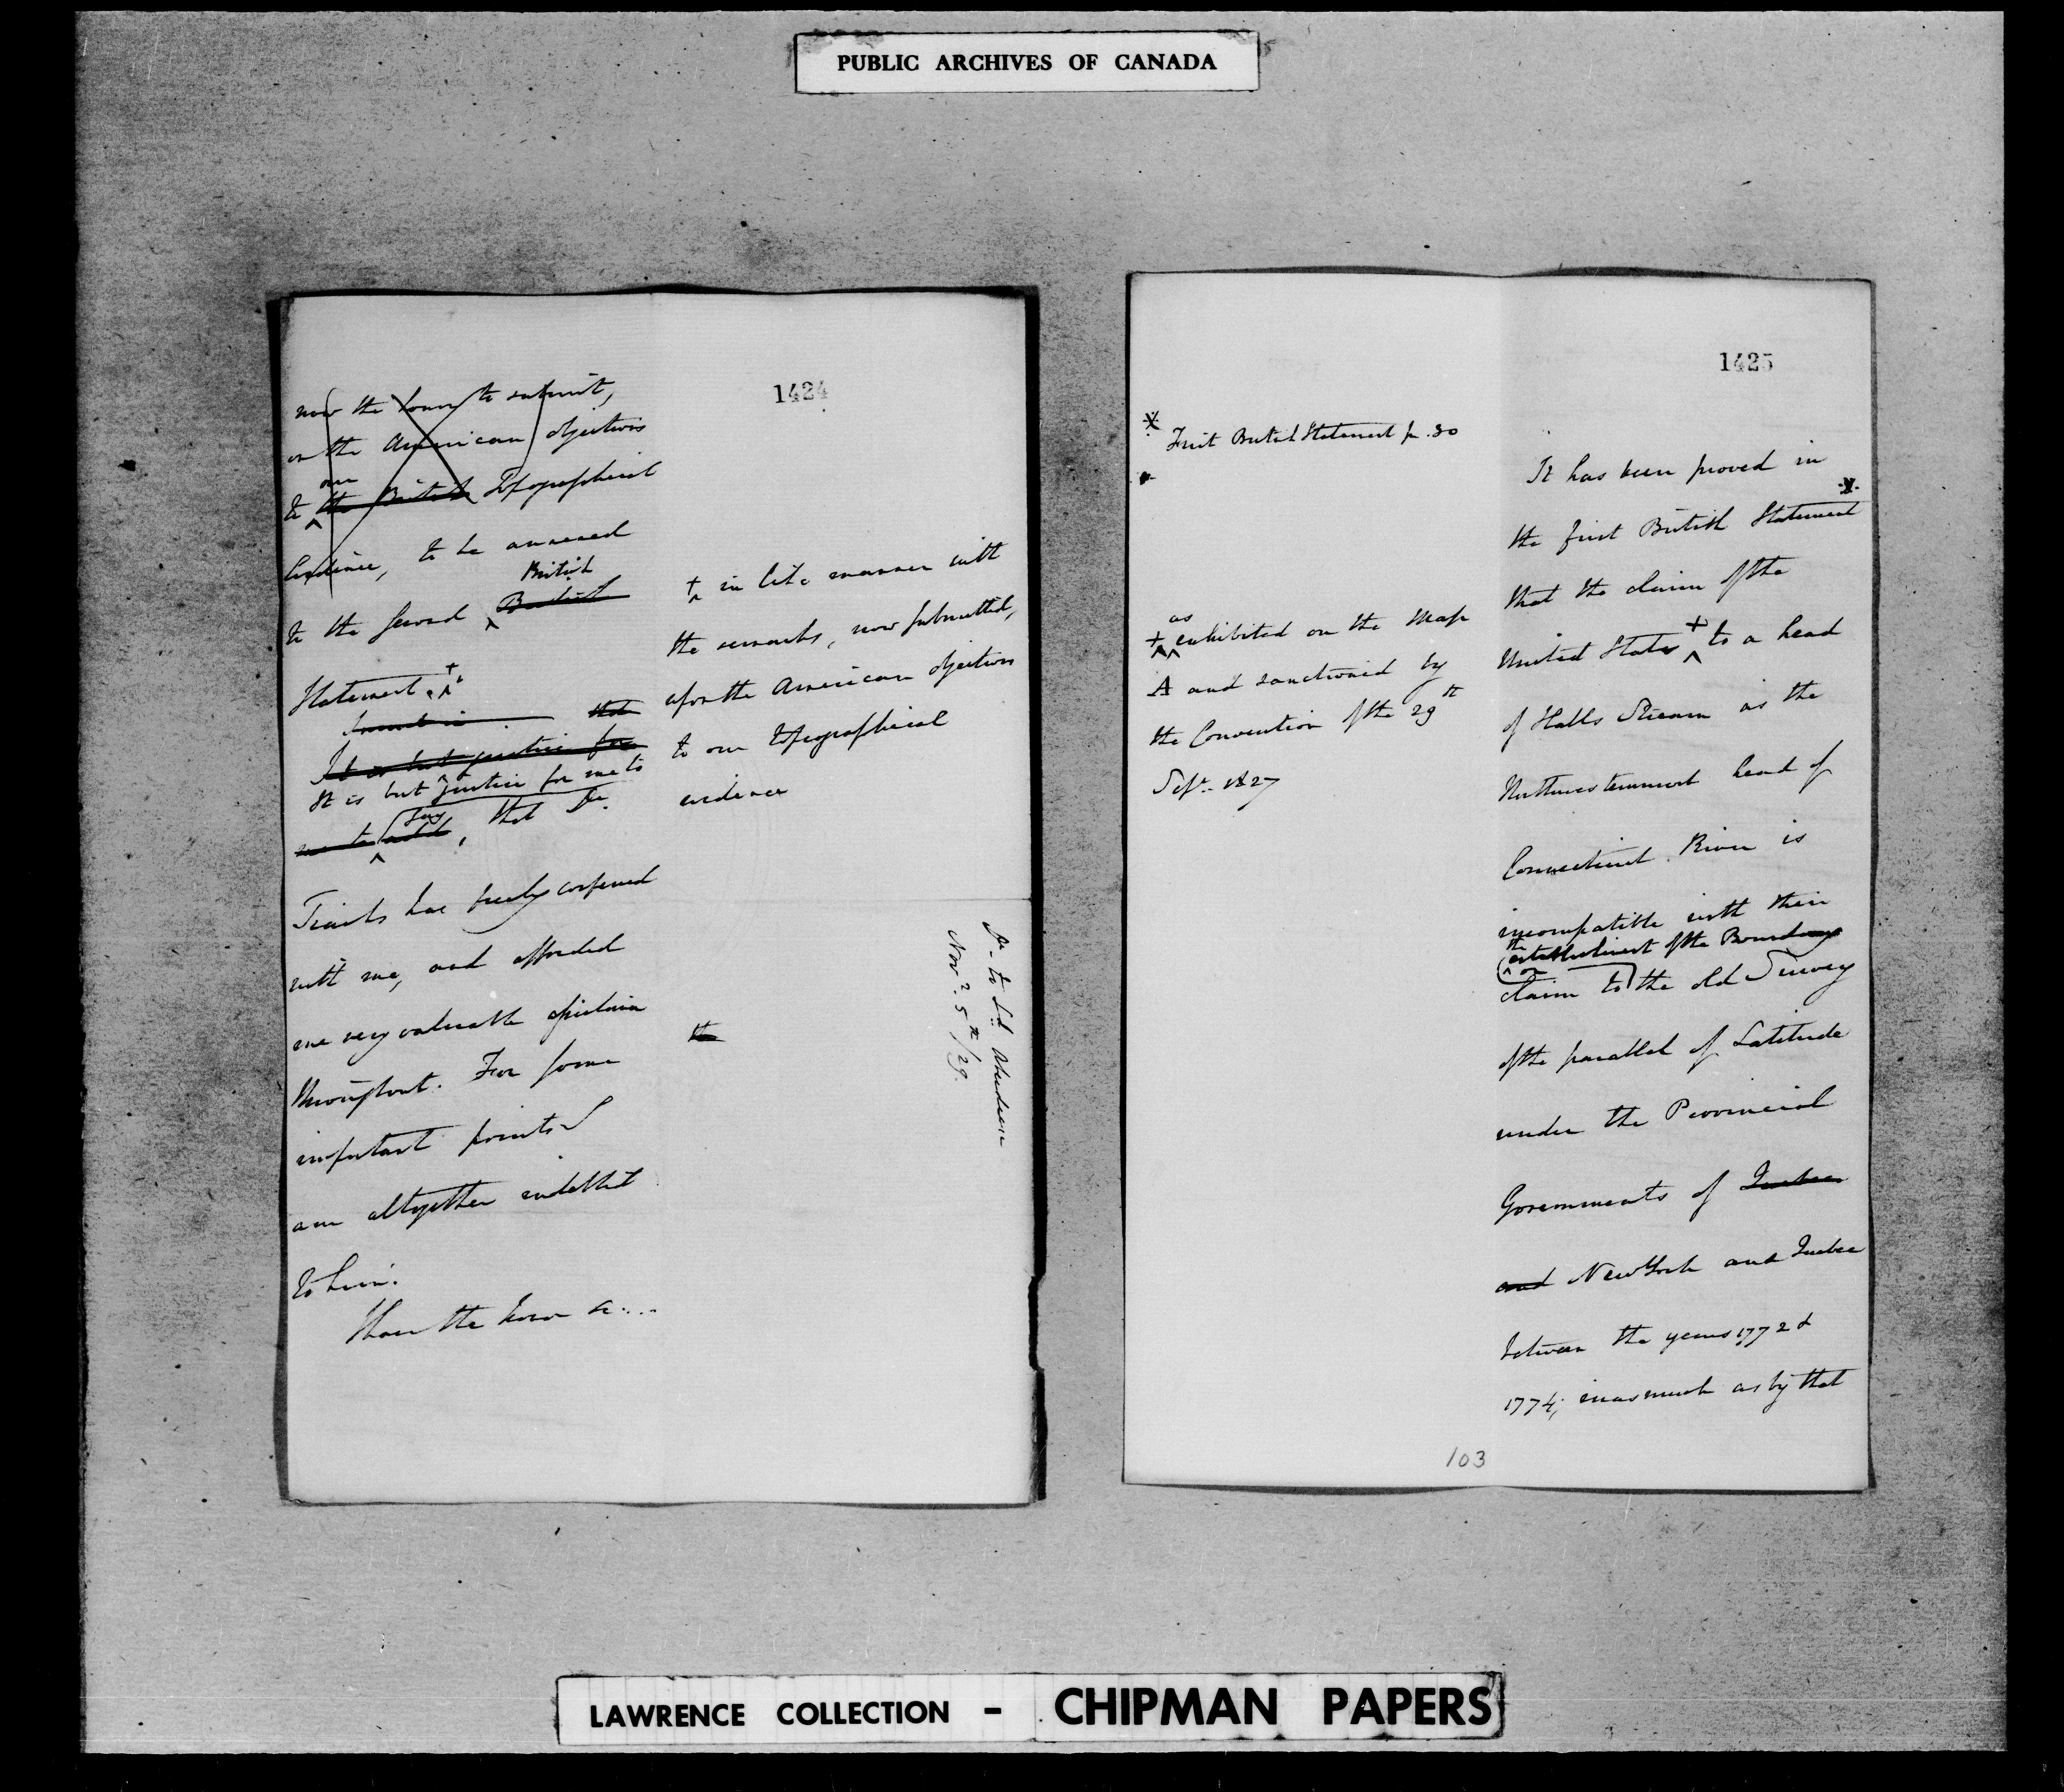 PUBLIC ARCHIVES OF CANADA
1424
now the honor to submit,
on the American objections
our
to the British Topographical
Evidence, to be annexed
British
to the Second British
Statement. +
that
It is but justice for
It is but justice for me to
say
me to add, that Dr.
Tiarks has freely conferred
with me, and afforded
me very valuable opinions
throughout. For some
important points I
am altogether indebted
to him.
I have the honor &c...
+ in like manner with
the remarks, now submitted,
upon the American objections
to our topographical
evidence
the
Dr. to Ld. Aberdeen
Novr. 5th/29.
1425
First British Statement p. 30
as
+ exhibited on the Map
A and sanctioned by
the Convention of the 29th
Sept. 1827
It has been proved in
the first British Statement
that the claim of the
United States + to a head
of Halls Stream as the
Northwesternmost head of
Connecticut River is
incompatible with their
the establishment of the Boundary
on
claim to the old Survey
of the parallel of Latitude
under the Provincial
Governments of Quebec
and New York and Quebec
between the years 1772 &
1774; inasmuch as by that
103
LAWRENCE COLLECTION - CHIPMAN PAPERS